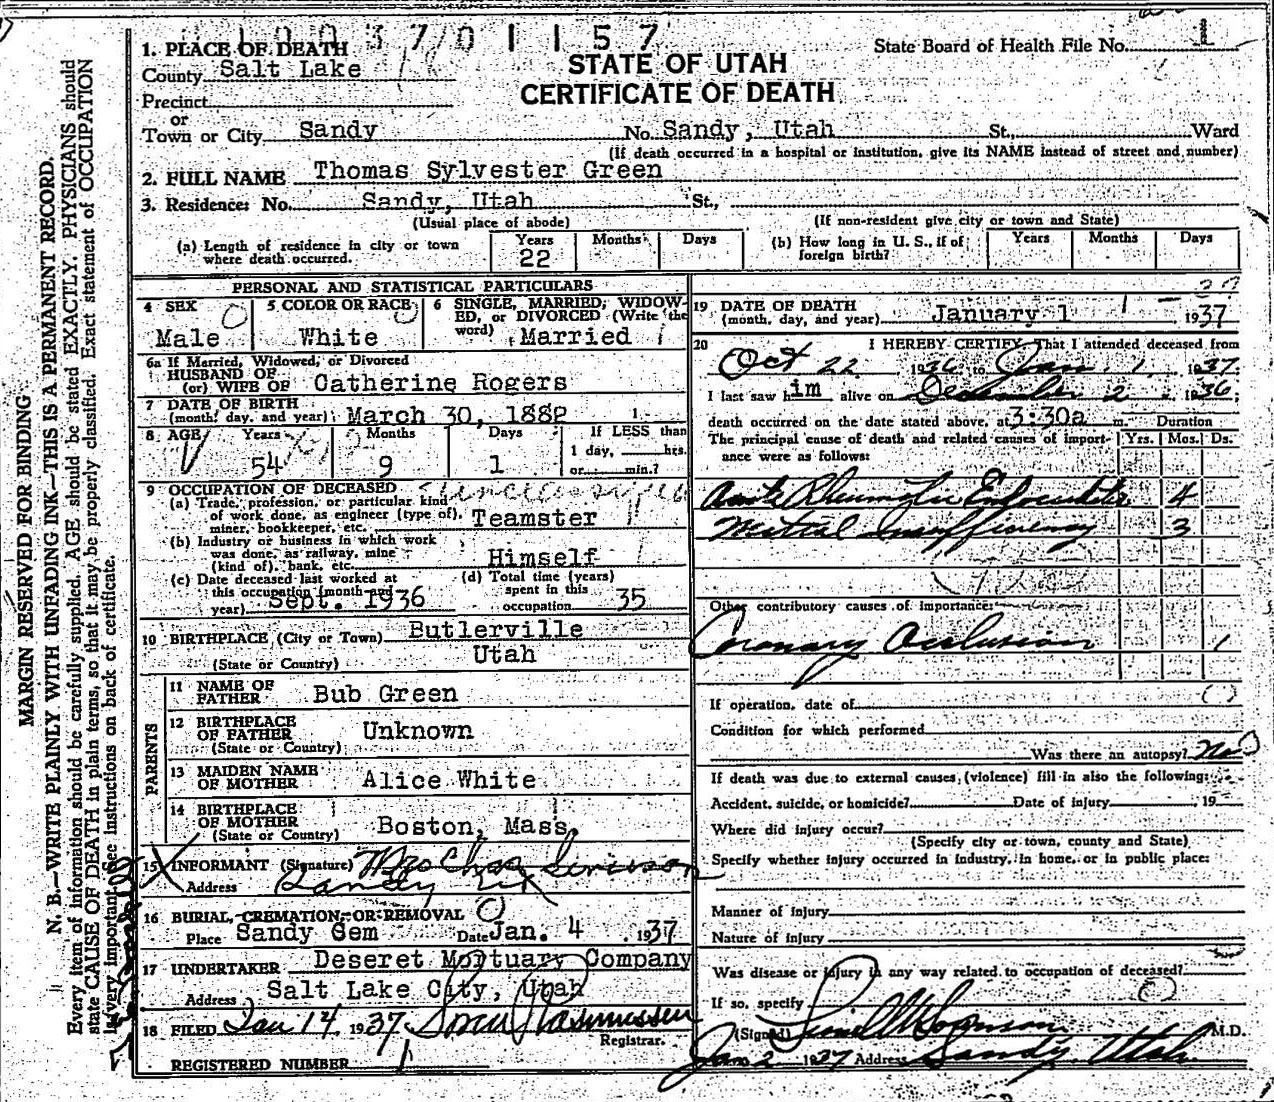 1003701157
1. PLACE OF DEATH
State Board of Health File No. 1
County Salt Lake
STATE OF UTAH
CERTIFICATE OF DEATH
Precinct
or
Town or City Sandy No. Sandy, Utah St., Ward
(If death occurred in a hospital or institution, give its NAME instead of street and number)
2. FULL NAME Thomas Sylvester Green
3. Residence: No. Sandy, Utah St.,
(Usual place of abode) (If non-resident give city or town and State)
(a) Length of residence in city or town where death occurred. Years 22 Months Days
(b) How long in U. S., if of foreign birth? Years Months Days
PERSONAL AND STATISTICAL PARTICULARS
4 SEX Male
5 COLOR OR RACE White
6 SINGLE, MARRIED, WIDOWED, or DIVORCED (Write the word) Married
6a If Married, Widowed, or Divorced
HUSBAND OF
(or) WIFE OF Catherine Rogers
7 DATE OF BIRTH
(month, day, and year) March 30, 1882
8 AGE Years 54 Months 9 Days 1 If LESS than 1 day, hrs. or min.?
9 OCCUPATION OF DECEASED
(a) Trade, profession, or particular kind of work done, as engineer (type of), miner, bookkeeper, etc. Teamster
(b) Industry or business in which work was done, as railway, mine (kind of), bank, etc. Himself
(c) Date deceased last worked at this occupation (month and year) Sept. 1936
(d) Total time (years) spent in this occupation 35
10 BIRTHPLACE (City or Town) Butlerville
(State or Country) Utah
PARENTS
11 NAME OF FATHER Bub Green
12 BIRTHPLACE OF FATHER (State or Country) Unknown
13 MAIDEN NAME OF MOTHER Alice White
14 BIRTHPLACE OF MOTHER (State or Country) Boston, Mass.
15 INFORMANT (Signature) Mrs Chas
Address Sandy Ut
16 BURIAL, CREMATION, OR REMOVAL
Place Sandy Cem Date Jan. 4, 1937
17 UNDERTAKER Deseret Mortuary Company
Address Salt Lake City, Utah
18 FILED Jan 14, 1937 Soren Rasmussen
Registrar.
REGISTERED NUMBER 1
19 DATE OF DEATH
(month, day, and year) January 1 1937
20 I HEREBY CERTIFY, That I attended deceased from
Oct 22 1936, to Jan. 1. 1937.
I last saw him alive on December 2 1936;
death occurred on the date stated above, at 3:30a m. Duration
The principal cause of death and related causes of importance were as follows: Yrs. Mos. Ds.
Acute Rheumatic Endocarditis 4
Mitral Insufficiency 3
Other contributory causes of importance:
Coronary Occlusion 1
If operation, date of
Condition for which performed
Was there an autopsy? No
If death was due to external causes, (violence) fill in also the following:
Accident, suicide, or homicide? Date of injury 19
Where did injury occur?
(Specify city or town, county and State)
Specify whether injury occurred in industry, in home, or in public place:
Manner of injury
Nature of injury
Was disease or injury in any way related to occupation of deceased?
If so, specify
(Signed) M.D.
Jan 2 1937 Address Sandy, Utah.
MARGIN RESERVED FOR BINDING
N. B.—WRITE PLAINLY WITH UNFADING INK—THIS IS A PERMANENT RECORD.
Every item of information should be carefully supplied. AGE should be stated EXACTLY. PHYSICIANS should
state CAUSE OF DEATH in plain terms, so that it may be properly classified. Exact statement of OCCUPATION
is very important. See instructions on back of certificate.